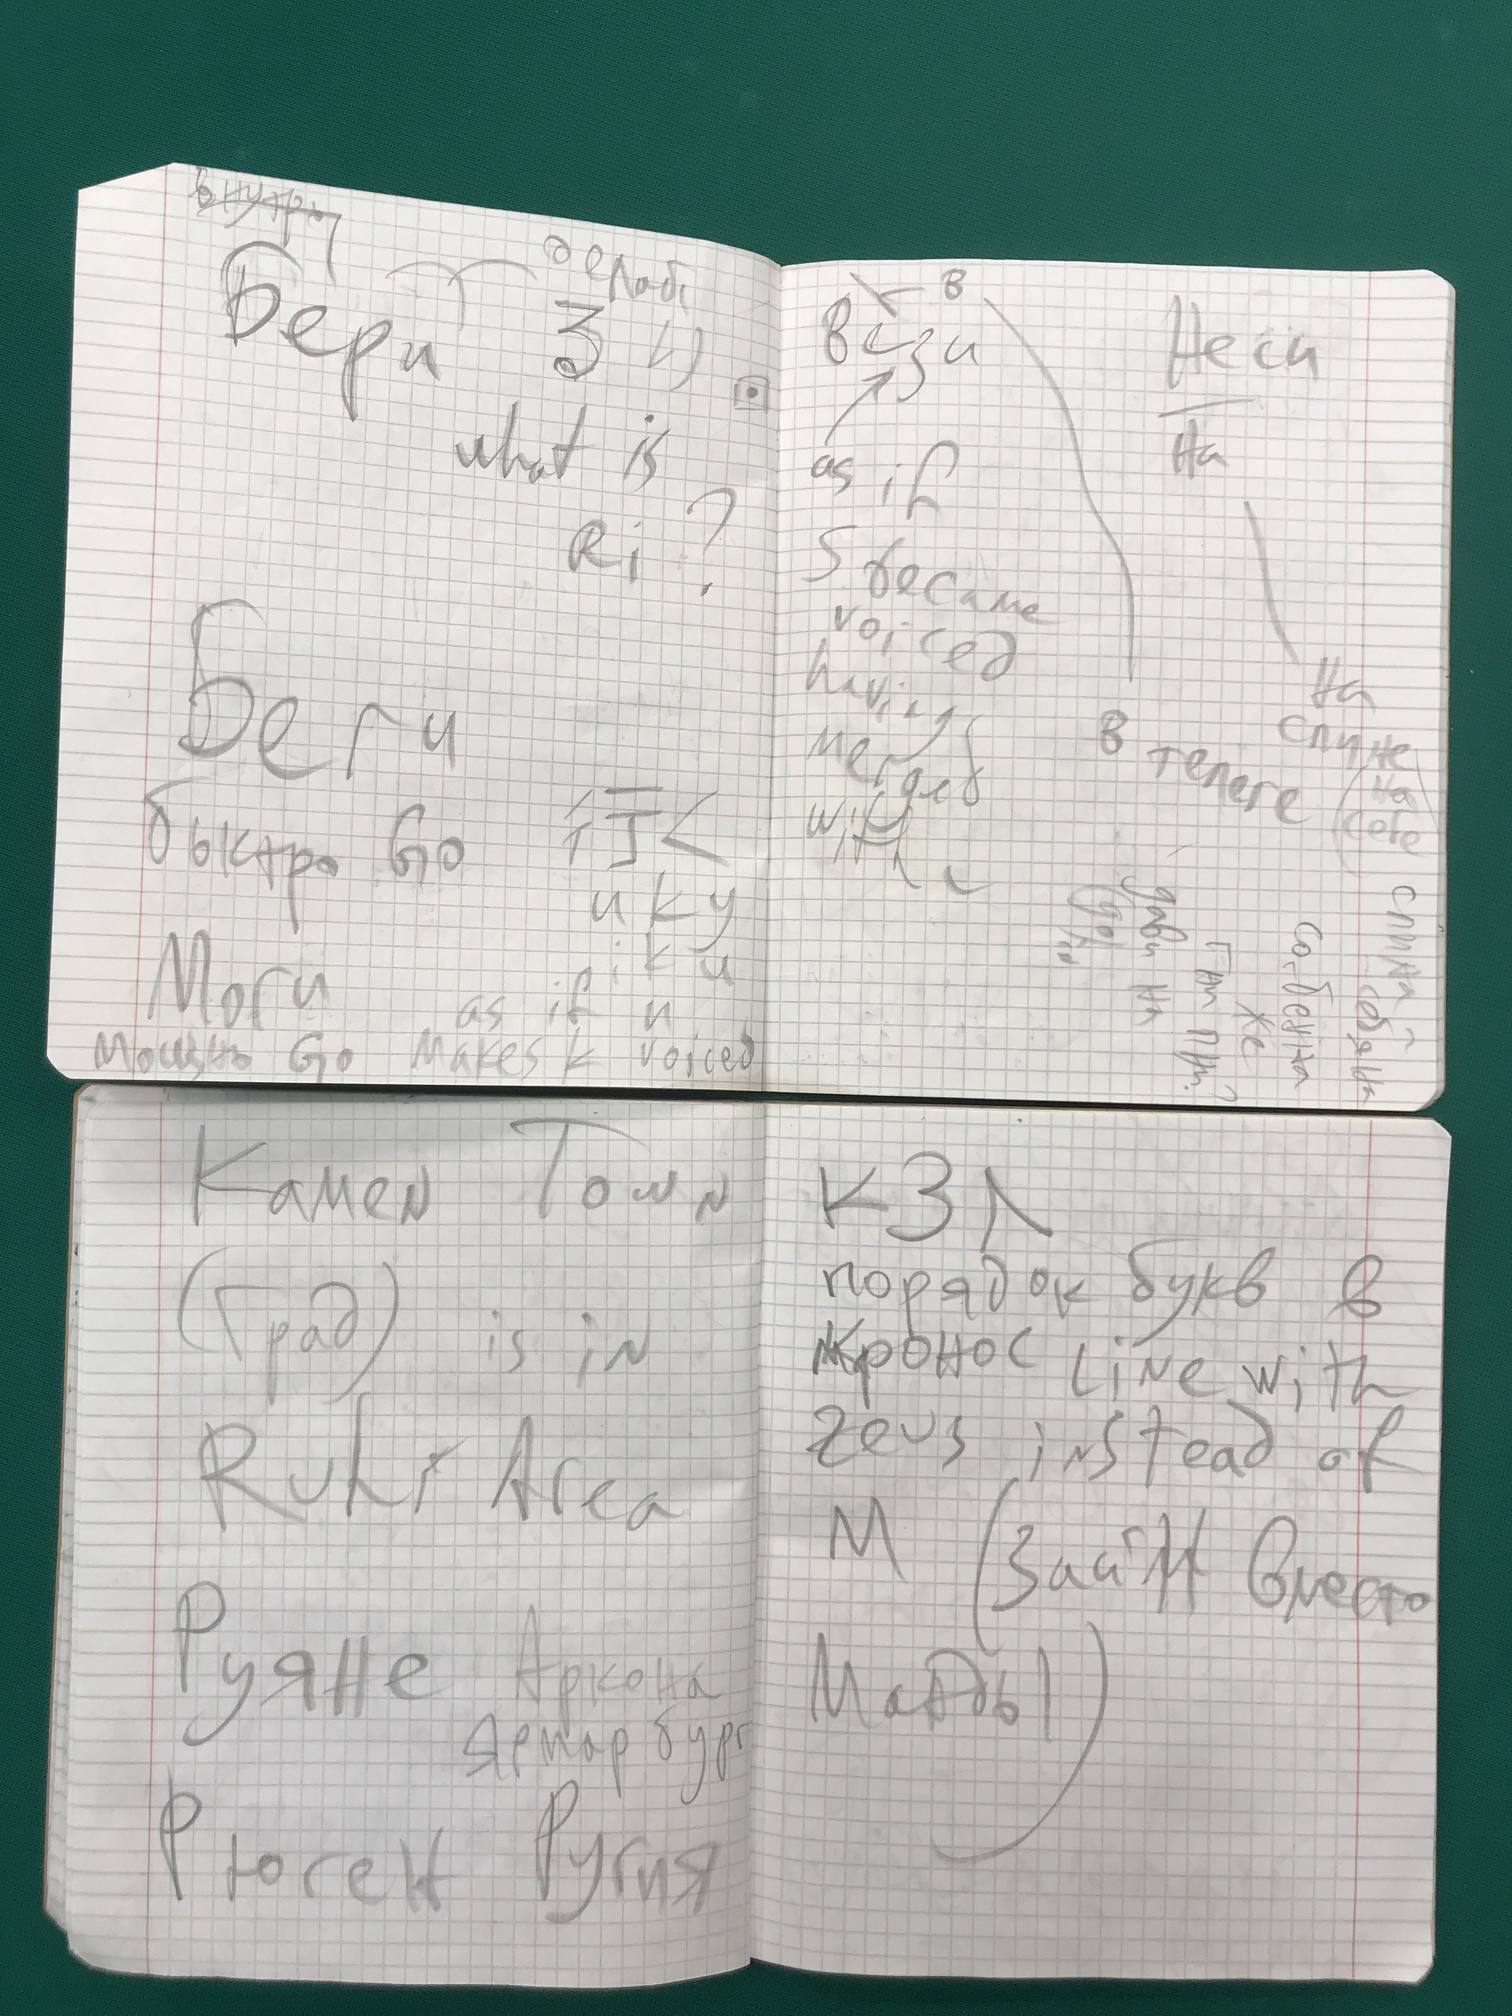 внутрь
делай
Бери З
what is
Ri ?
Беги
быстро Go 行く
ику
iku
Моги as if и
мощнь Go makes k voiced
в
Вези
as if
S became
voiced
having
merged
with
Неси
На
На
спине
на
себе
В телеге
дави на
Гни при?
же
собенна
спина
Камен Town
(Град) is in
Ruhr Area
Руяне Аркона
Ярмар бург
Рюген Ругия
КЗЛ
порядок букв в
Кронос Line with
Zeus instead of
M (Зайн вместо
Мады)